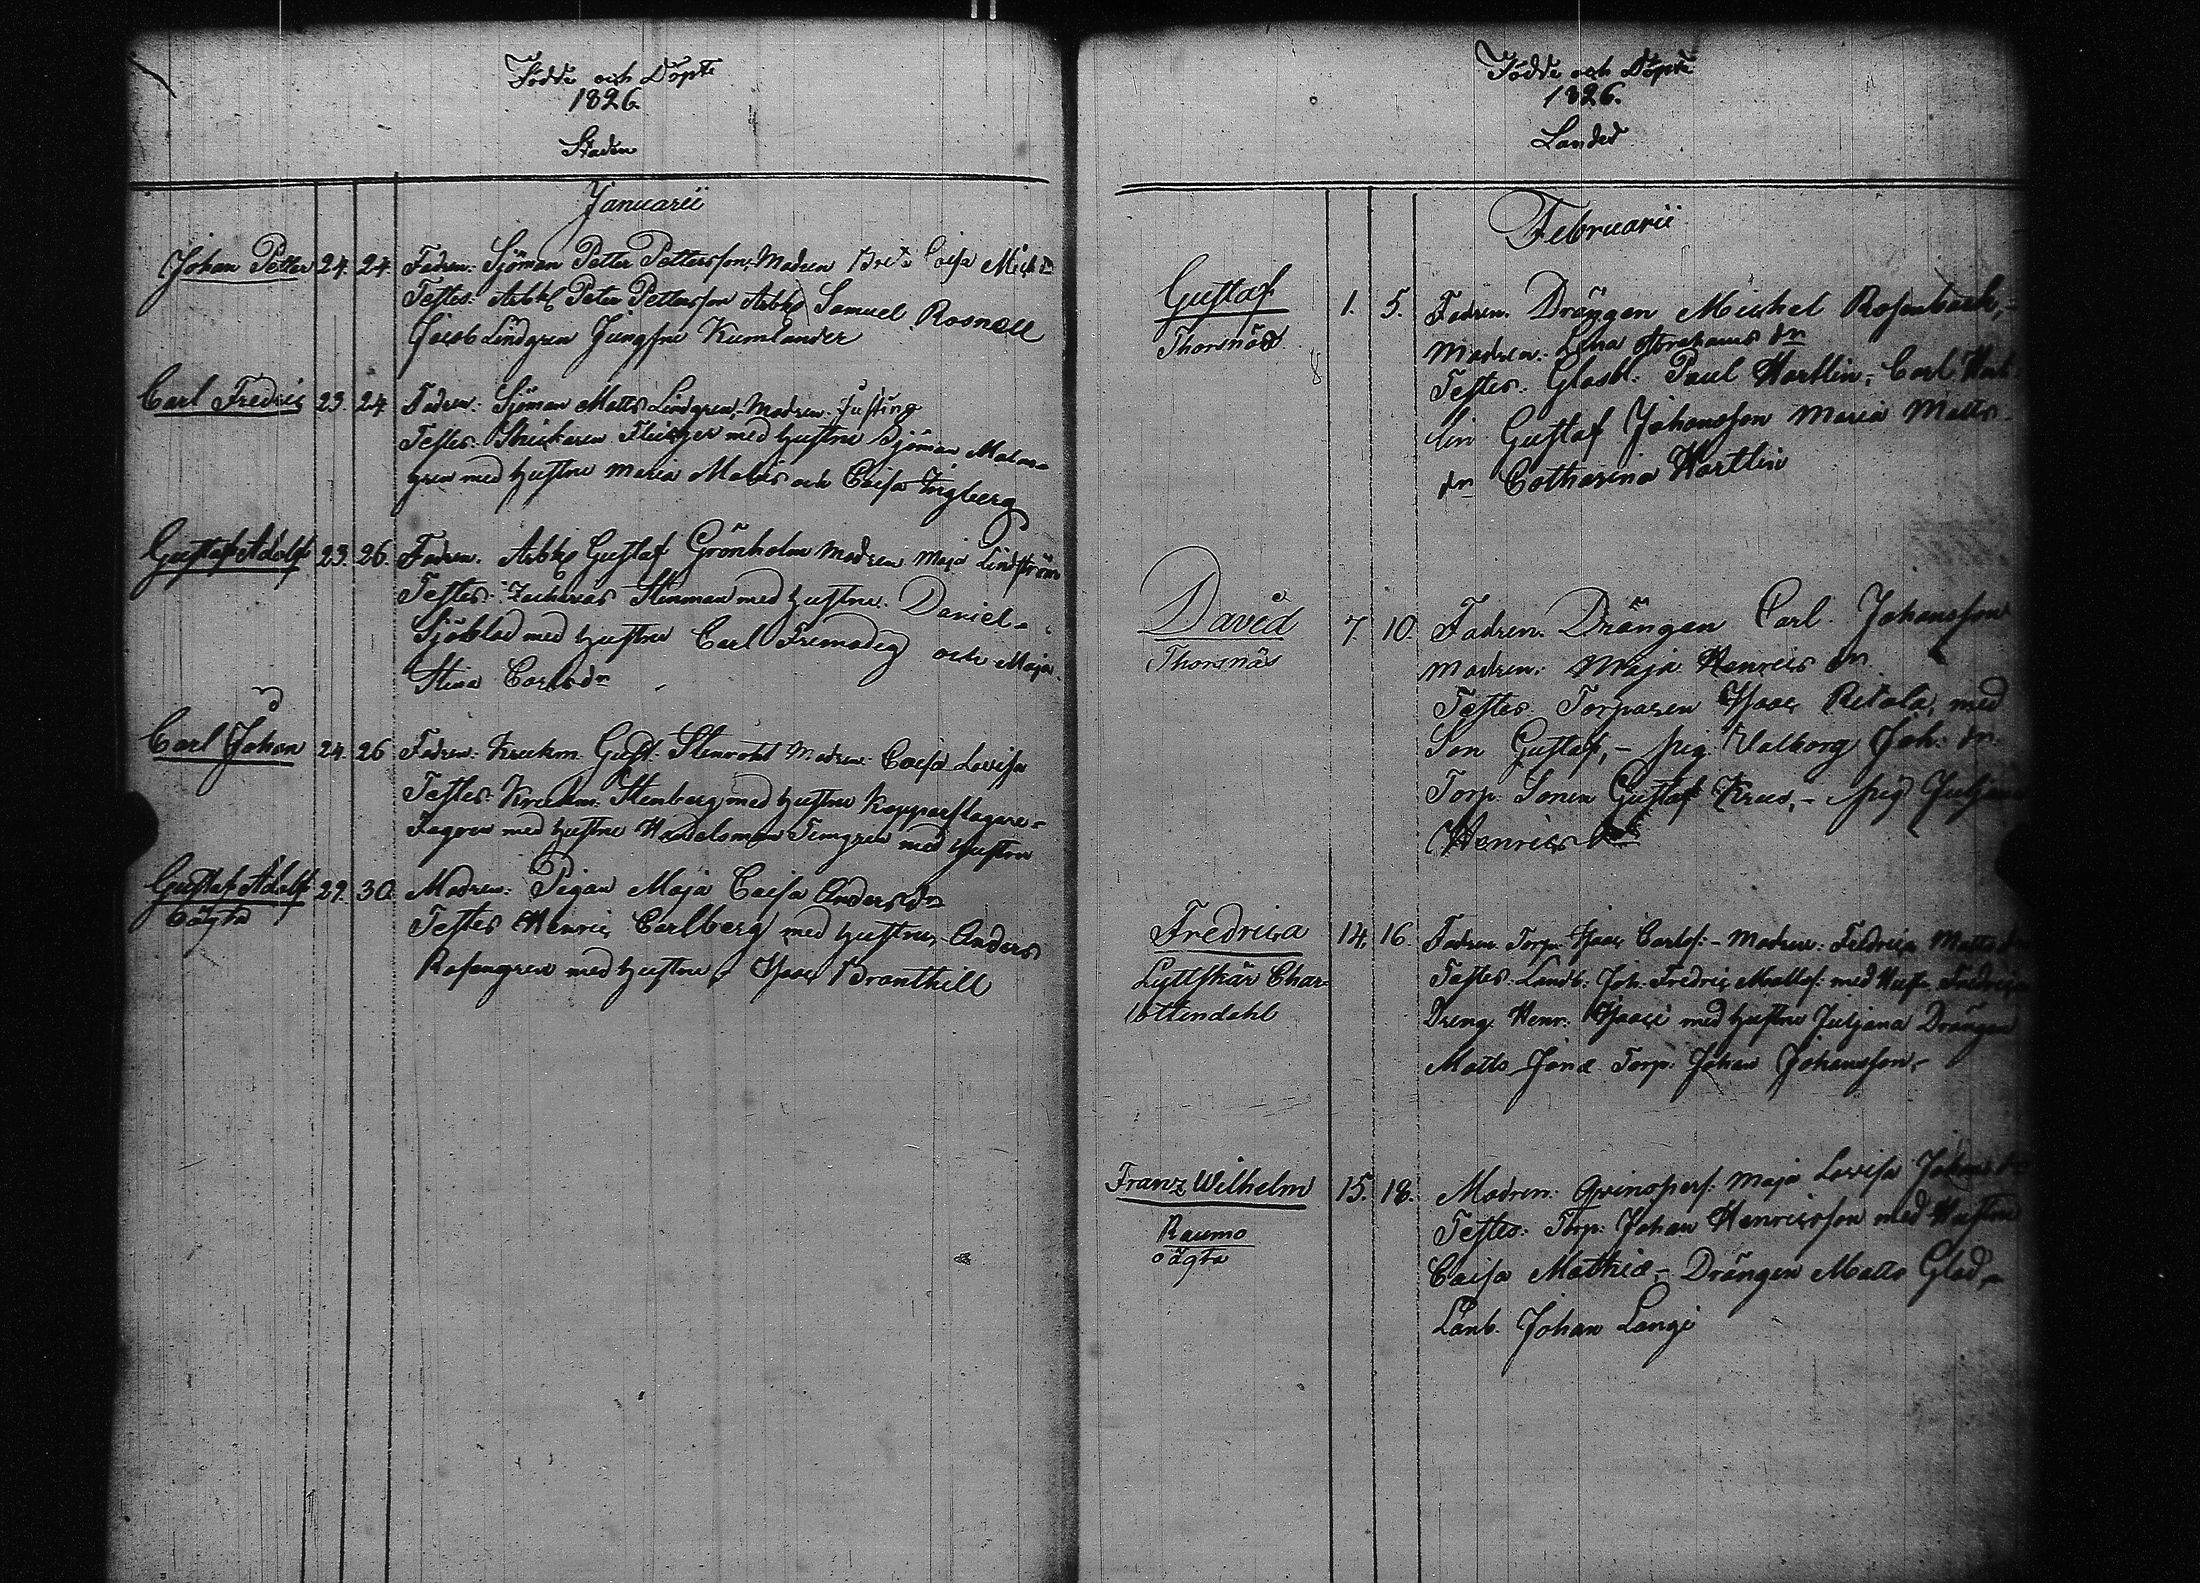 Födde och Döpte
1826.
Staden
Januarii
Johan Petter 24. 24. Fadren: Sjöman Petter Pettersson, Modren Brita Caisa Mich dr
Testes: Arbk Peter Pettersson Arbk Samuel Rosnell
Jacob Lindgren Jungfru Kumlander
Carl Fredric 23. 24 Fadren: Sjöman Matts Lindgren, Modren: Justina
Testes: Fleisger med hustru Sjöman Malm-
gren med hustru Maria Malis och Caisa Engberg
Gustaf Adolf 23. 26. Fadren. Arbk Gustaf Grönholm Modren Maja Lindström
Testes: Zacharias Stenman med hustru. Daniel
Sjöblad med hustru Carl Fremodig och Maja
Stina Carlsdr
Carl Johan 24. 26 Fadren: Gust. Stenroth Modren: Caisa Lovisa
Testes: Stenberg med hustru Kopparslagare
Fagren med hustru Handelsman Temgren med hustru
Gustaf Adolf 29. 30. Modren: Pigan Maja Caisa Andersdr
oägta
Testes Henric Carlberg med hustru, Anders
Rosengren med hustru, Isaac Branthill
Födde och Döpte
1826.
Landet
Februarii
Gustaf 1. 5. Fadren. Drängen Michel Rosenback,
Thorsnäs
Modren: Lena Abrahams dr
Testes: Glasbl. Paul Hartlin, Carl Hart
lin Gustaf Johansson Maria Matts
dr Catharina Hartlin
David 7. 10. Fadren. Drängen Carl Johansson
Thorsnäs
Modren: Maja Henrics dr
Testes Torparen Isaac Retala, med
Son Gustaf, - pig. Valborg Joh: dr.
Torp. Sonen Gustaf Krus, - pig Juljana
Henrics dr
Fredrica 14. 16. Fadren Torp. Isaac Carlss: - Modren: Fredrica Matts dr
Lyttskär Char-
lottendahl
Testes: Landb: Joh. Fredric Mattss: med Hust. Fredrica
Dreng. Henr: Isaaci med hustru Juljana Drängen
Matts Jonæ Torp: Johan Johansson.
Franz Wilhelm 15. 18. Modren: Qvinspers: Maja Lovisa Johans dr
Raumo
oägta
Testes: Torp: Johan Henricsson med Hustru
Caisa Mathiæ, Drängen Matts Glad,
Lanb. Johan Langi